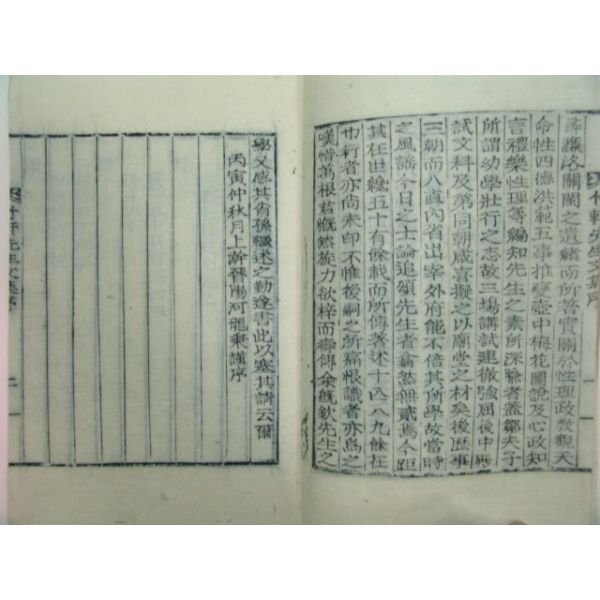 竹軒先生文集序
濂洛關閩之遺緖而所著實關於性理政敎觀天
命性四德洪範五事推 壺中梅花圖說及心政知
言禮樂性理等編知先生之素所深 者盖鄒夫子
所謂幼學壯行之志故三場講試連徹强屈後中
試文科及第同朝咸喜擬之以廟堂之材矣後歷事
三朝而入直內省出宰外府能不倍其所學故當時
之風謠今日之士論追頌先生者翕然無貳焉今距
其在世纔五十有餘載而所傳著述十 八九餘在
也行者亦尚未印不惟後嗣之所痛恨識者亦爲之
嘆惜萬根君慨然旋力欲梓而壽傳余旣欽先生之
學又感其肖孫繼述之勤遂書此以塞其請云爾
丙寅仲秋月上澣晉陽河龍秉謹序
竹軒先生文集序
二